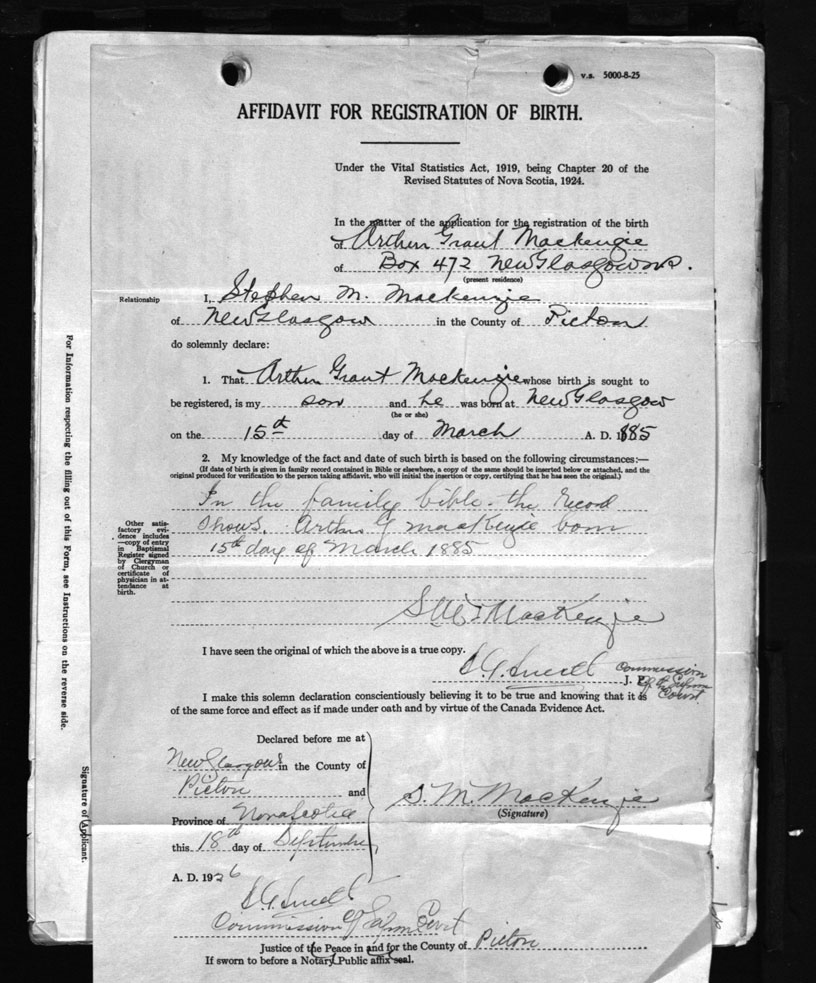 v.s. 5000-8-25
AFFIDAVIT FOR REGISTRATION OF BIRTH.
Under the Vital Statistics Act, 1919, being Chapter 20 of the
Revised Statutes of Nova Scotia, 1924.
In the matter of the application for the registration of the birth
of Arthur Grant Mackenzie
of Box 472 New Glasgow N.S.
(present residence)
Relationship
I, Stephen M. Mackenzie
of New Glasgow in the County of Picton
do solemnly declare:
1. That Arthur Grant Mackenzie whose birth is sought to
be registered, is my son and he was born at New Glasgow
(he or she)
on the 15th day of March A. D. 1885
2. My knowledge of the fact and date of such birth is based on the following circumstances:—
(If date of birth is given in family record contained in Bible or elsewhere, a copy of the same should be inserted below or attached, and the
original produced for verification to the person taking affidavit, who will initial the insertion or copy, certifying that he has seen the original.)
In the family bible. the record
shows. Arthur G MacKenzie born
15th day of March 1885
Other satis-
factory evi-
dence includes
—copy of entry
in Baptismal
Register signed
by Clergyman
of Church or
certificate of
physician in at-
tendance at
birth.
MacKenzie
I have seen the original of which the above is a true copy.
J. P.
Commission
Court
I make this solemn declaration conscientiously believing it to be true and knowing that it is
of the same force and effect as if made under oath and by virtue of the Canada Evidence Act.
Declared before me at
New Glasgow in the County of
Picton and
Province of Nova Scotia
this 18th day of September
A. D. 1926
S. M. MacKenzie
(Signature)
Commission of
Justice of the Peace in and for the County of Picton
If sworn to before a Notary Public affix seal.
For Information respecting the filling out of this Form, see Instructions on the reverse side.
Signature of Applicant.